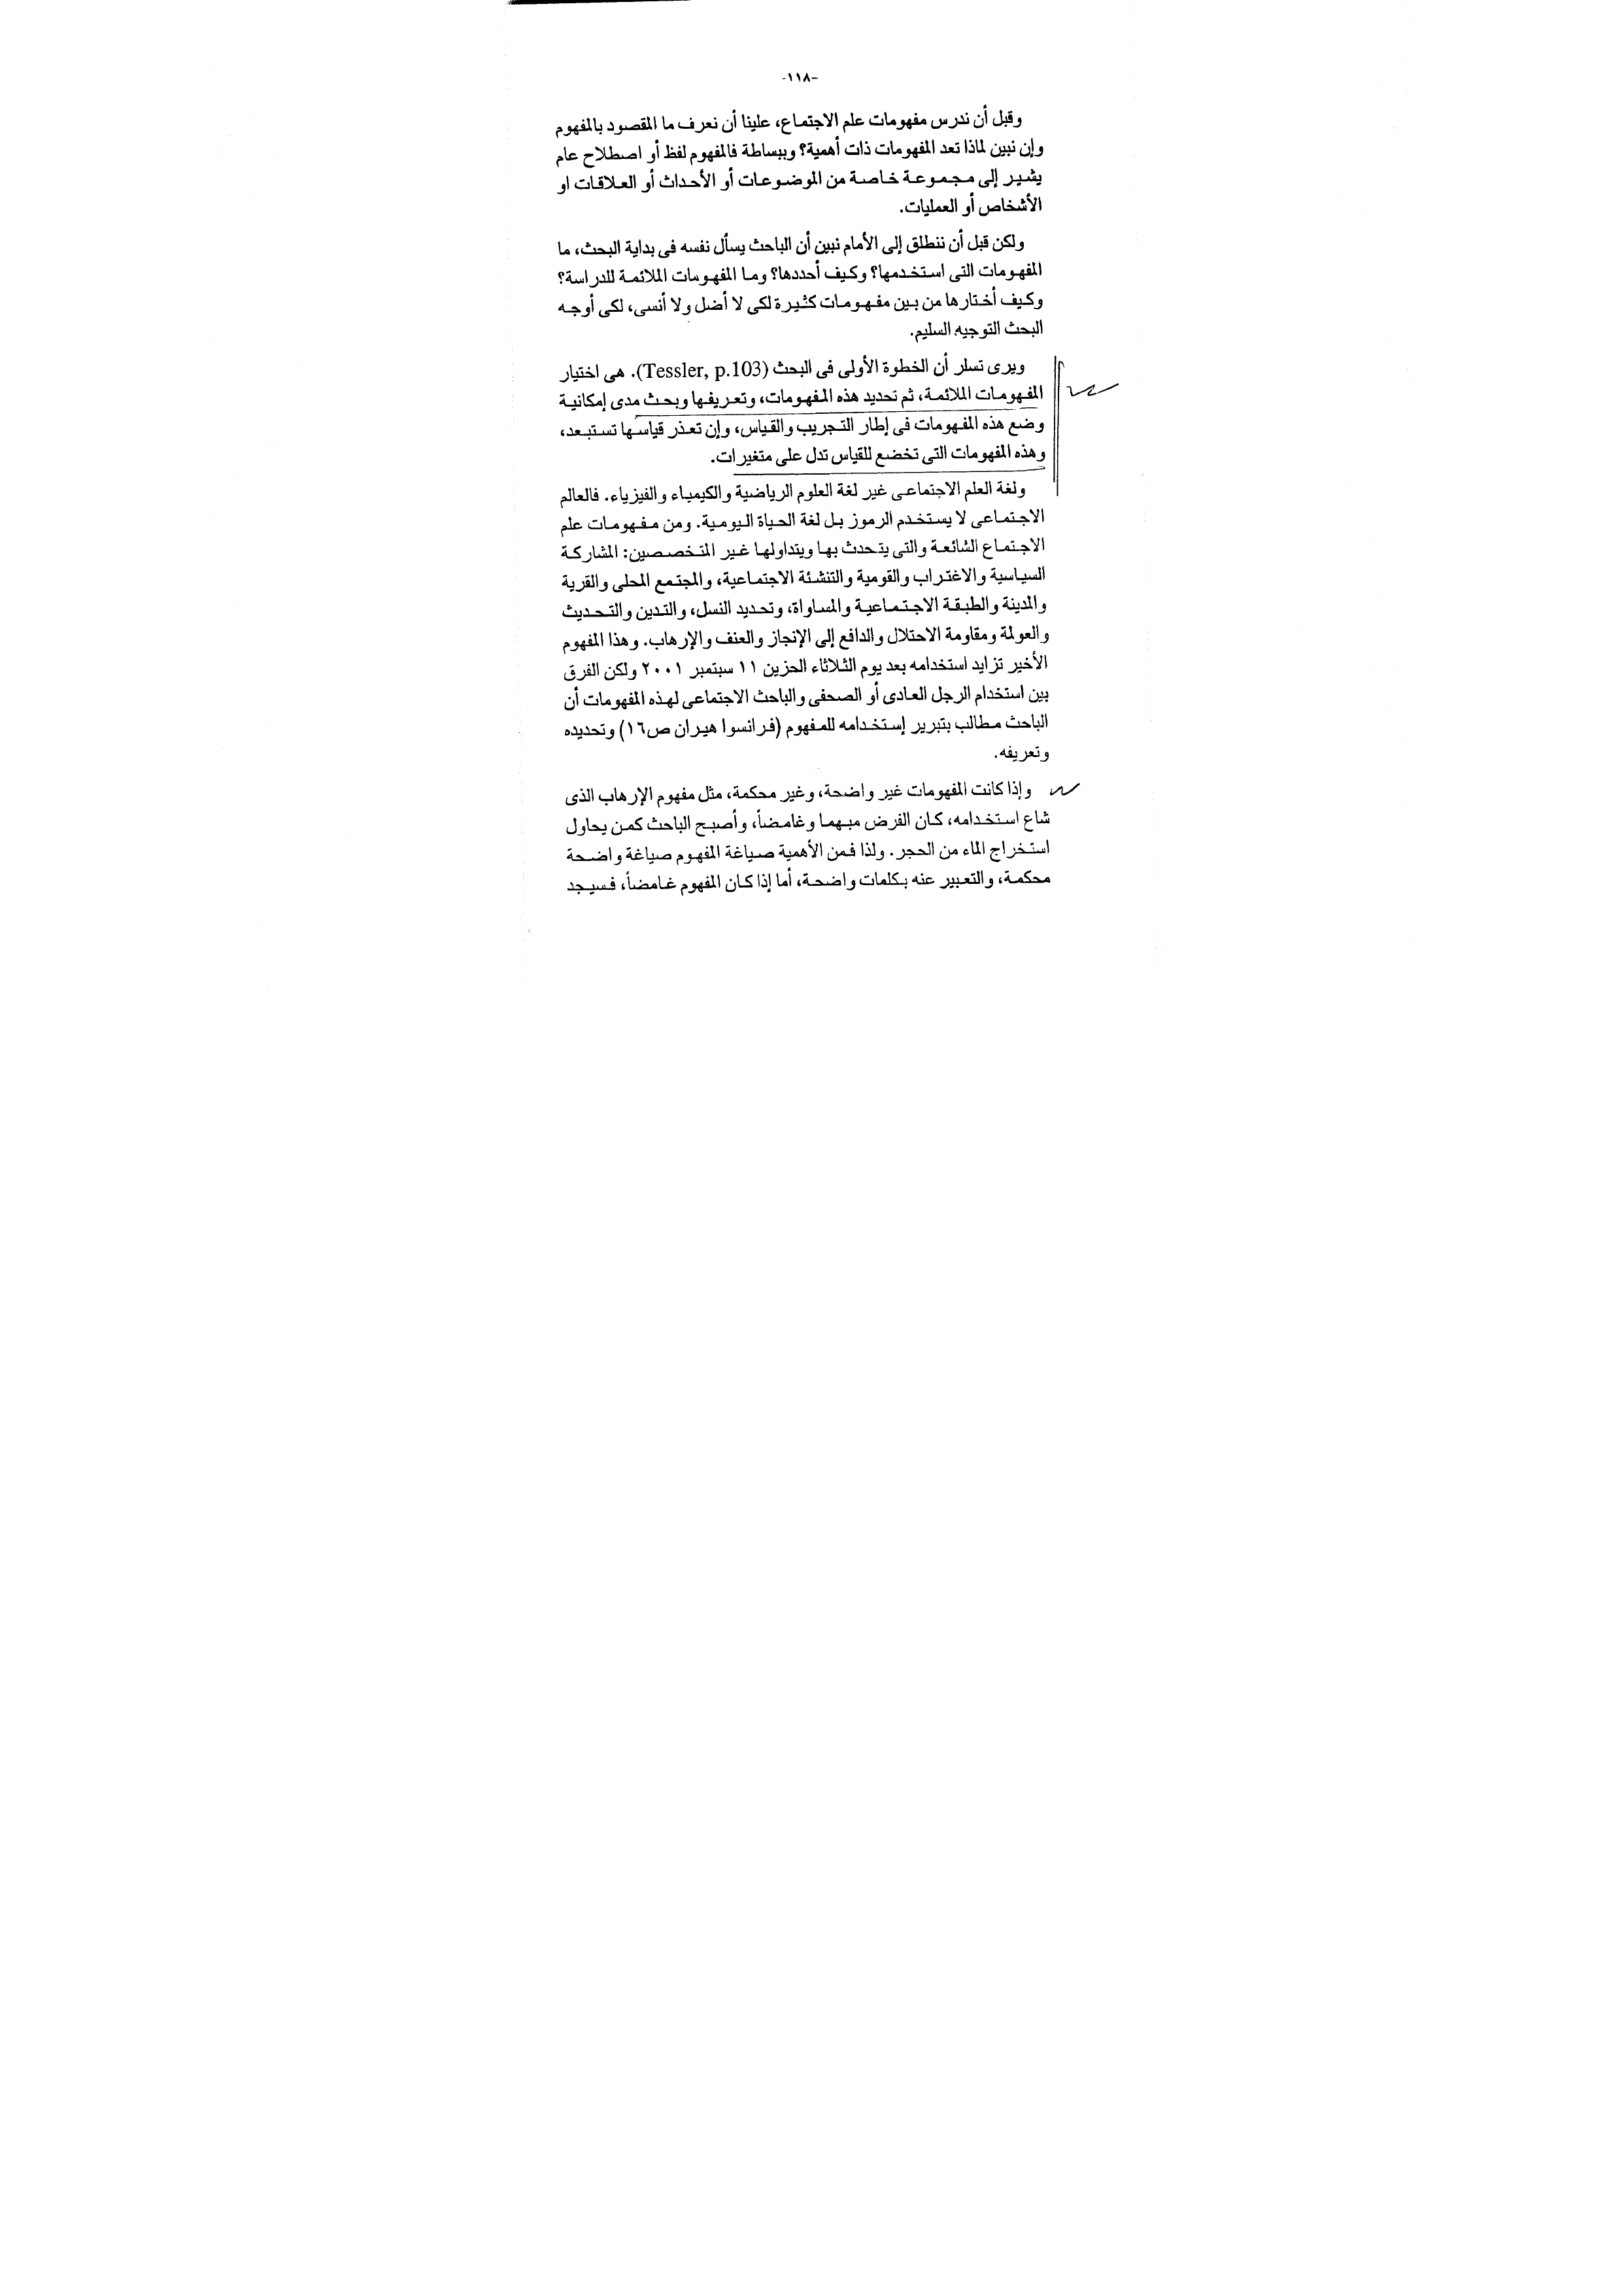 -١١٨-
وقبل أن ندرس مفهومات علم الاجتماع، علينا أن نعرف ما المقصود بالمفهوم
وإن نبين لماذا تعد المفهومات ذات أهمية؟ وببساطة فالمفهوم لفظ أو اصطلاح عام
يشير إلى مجموعة خاصة من الموضوعات أو الأحداث أو العلاقات او
الأشخاص أو العمليات.
ولكن قبل أن ننطلق إلى الأمام نبين أن الباحث يسأل نفسه فى بداية البحث، ما
المفهومات التى استخدمها؟ وكيف أحددها؟ وما المفهومات الملائمة للدراسة؟
وكيف أختارها من بين مفهومات كثيرة لكى لا أضل ولا أنسى، لكى أوجه
البحث التوجيه السليم.
ويرى تسلر أن الخطوة الأولى فى البحث (Tessler, p.103). هى اختيار
المفهومات الملائمة، ثم تحديد هذه المفهومات، وتعريفها وبحث مدى إمكانية
وضع هذه المفهومات فى إطار التجريب والقياس، وإن تعذر قياسها تستبعد،
وهذه المفهومات التى تخضع للقياس تدل على متغيرات.
ولغة العلم الاجتماعى غير لغة العلوم الرياضية والكيمياء والفيزياء. فالعالم
الاجتماعى لا يستخدم الرموز بل لغة الحياة اليومية. ومن مفهومات علم
الاجتماع الشائعة والتى يتحدث بها ويتداولها غير المتخصصين: المشاركة
السياسية والاغتراب والقومية والتنشئة الاجتماعية، والمجتمع المحلى والقرية
والمدينة والطبقة الاجتماعية والمساواة، وتحديد النسل، والتدين والتحديث
والعولمة ومقاومة الاحتلال والدافع إلى الإنجاز والعنف والإرهاب. وهذا المفهوم
الأخير تزايد استخدامه بعد يوم الثلاثاء الحزين ١١ سبتمبر ٢٠٠١ ولكن الفرق
بين استخدام الرجل العادى أو الصحفى والباحث الاجتماعى لهذه المفهومات أن
الباحث مطالب بتبرير إستخدامه للمفهوم (فرانسوا هيران ص١٦) وتحديده
وتعريفه.
وإذا كانت المفهومات غير واضحة، وغير محكمة، مثل مفهوم الإرهاب الذى
شاع استخدامه، كان الفرض مبهما وغامضاً، وأصبح الباحث كمن يحاول
استخراج الماء من الحجر. ولذا فمن الأهمية صياغة المفهوم صياغة واضحة
محكمة، والتعبير عنه بكلمات واضحة، أما إذا كان المفهوم غامضاً، فسيجد